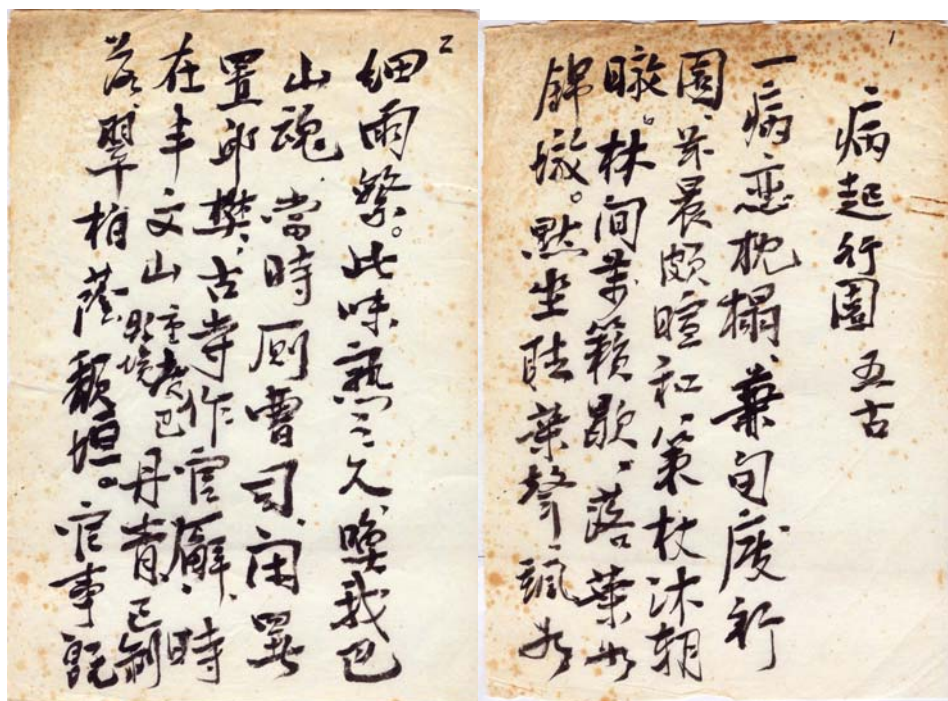 1
病起行園 五古
一病恋枕榻、兼旬废行
園、茲晨頗暄和、策杖沐朝
暾。林间萬籟歇、落葉如
錦墩。默坐聴葉聲、颯如
2
细雨繁。此味熟已久、喚我巴
山魂、當時厠曹司、闲署
置邱樊、古寺作官廨、時
在丰文山重慶巴縣境丹青已剝
落、翠柏蔭頹垣。官事既